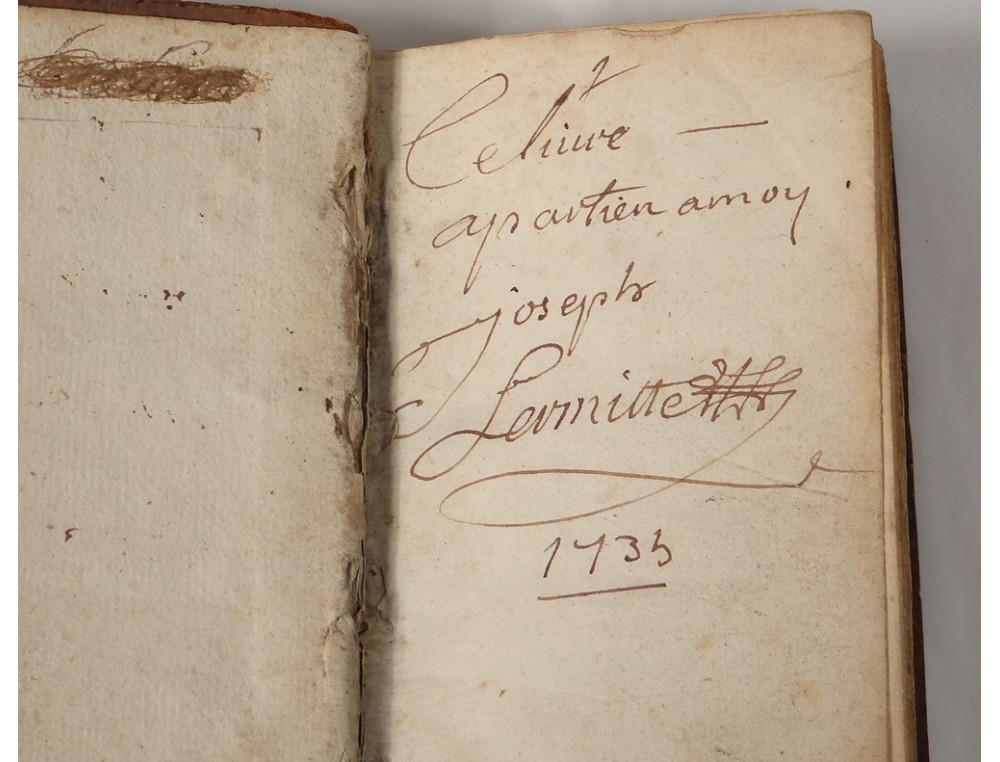 Ce liuvre
apartien amoy
joseph
Lermitte
1735